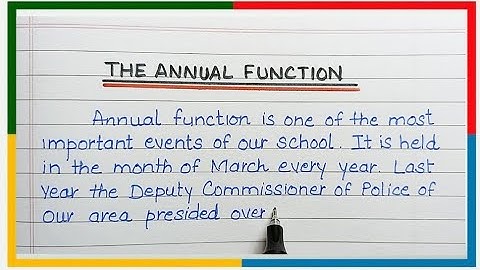 THE ANNUAL FUNCTION
Annual function is one of the most
important events of our school. It is held
in the month of March every year. Last
Year the Deputy Commissioner of Police of
our area presided over